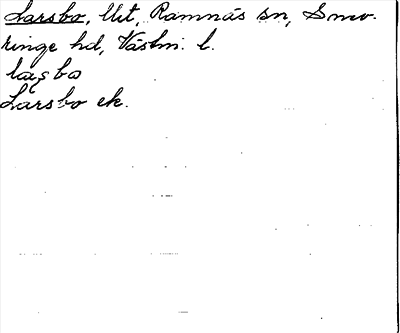 Larsbo, Utt, Ramnäs sn, Snev-
ringe hd, Västm. l.
laşbo
Larsbo ek.